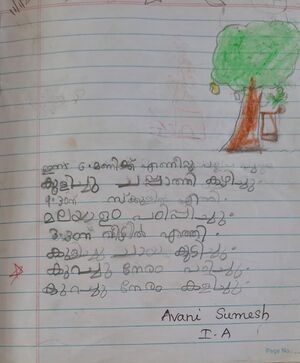 ഇന്ന് 6.മണിക്ക് എണീറ്റു
കുളിച്ചു ചപ്പാത്തി കഴിച്ചു.
9.30ന് സ്കൂളിൽ എത്തി.
മലയാളം പഠിപ്പിച്ചു.
3.30ന് വീട്ടിൽ എത്തി.
കുളിച്ചു ചായ കുടിച്ചു.
കുറച്ചു നേരം പഠിച്ചു.
കുറച്ചു നേരം കളിച്ചു.
Avani Sumesh
I.A
Page No.